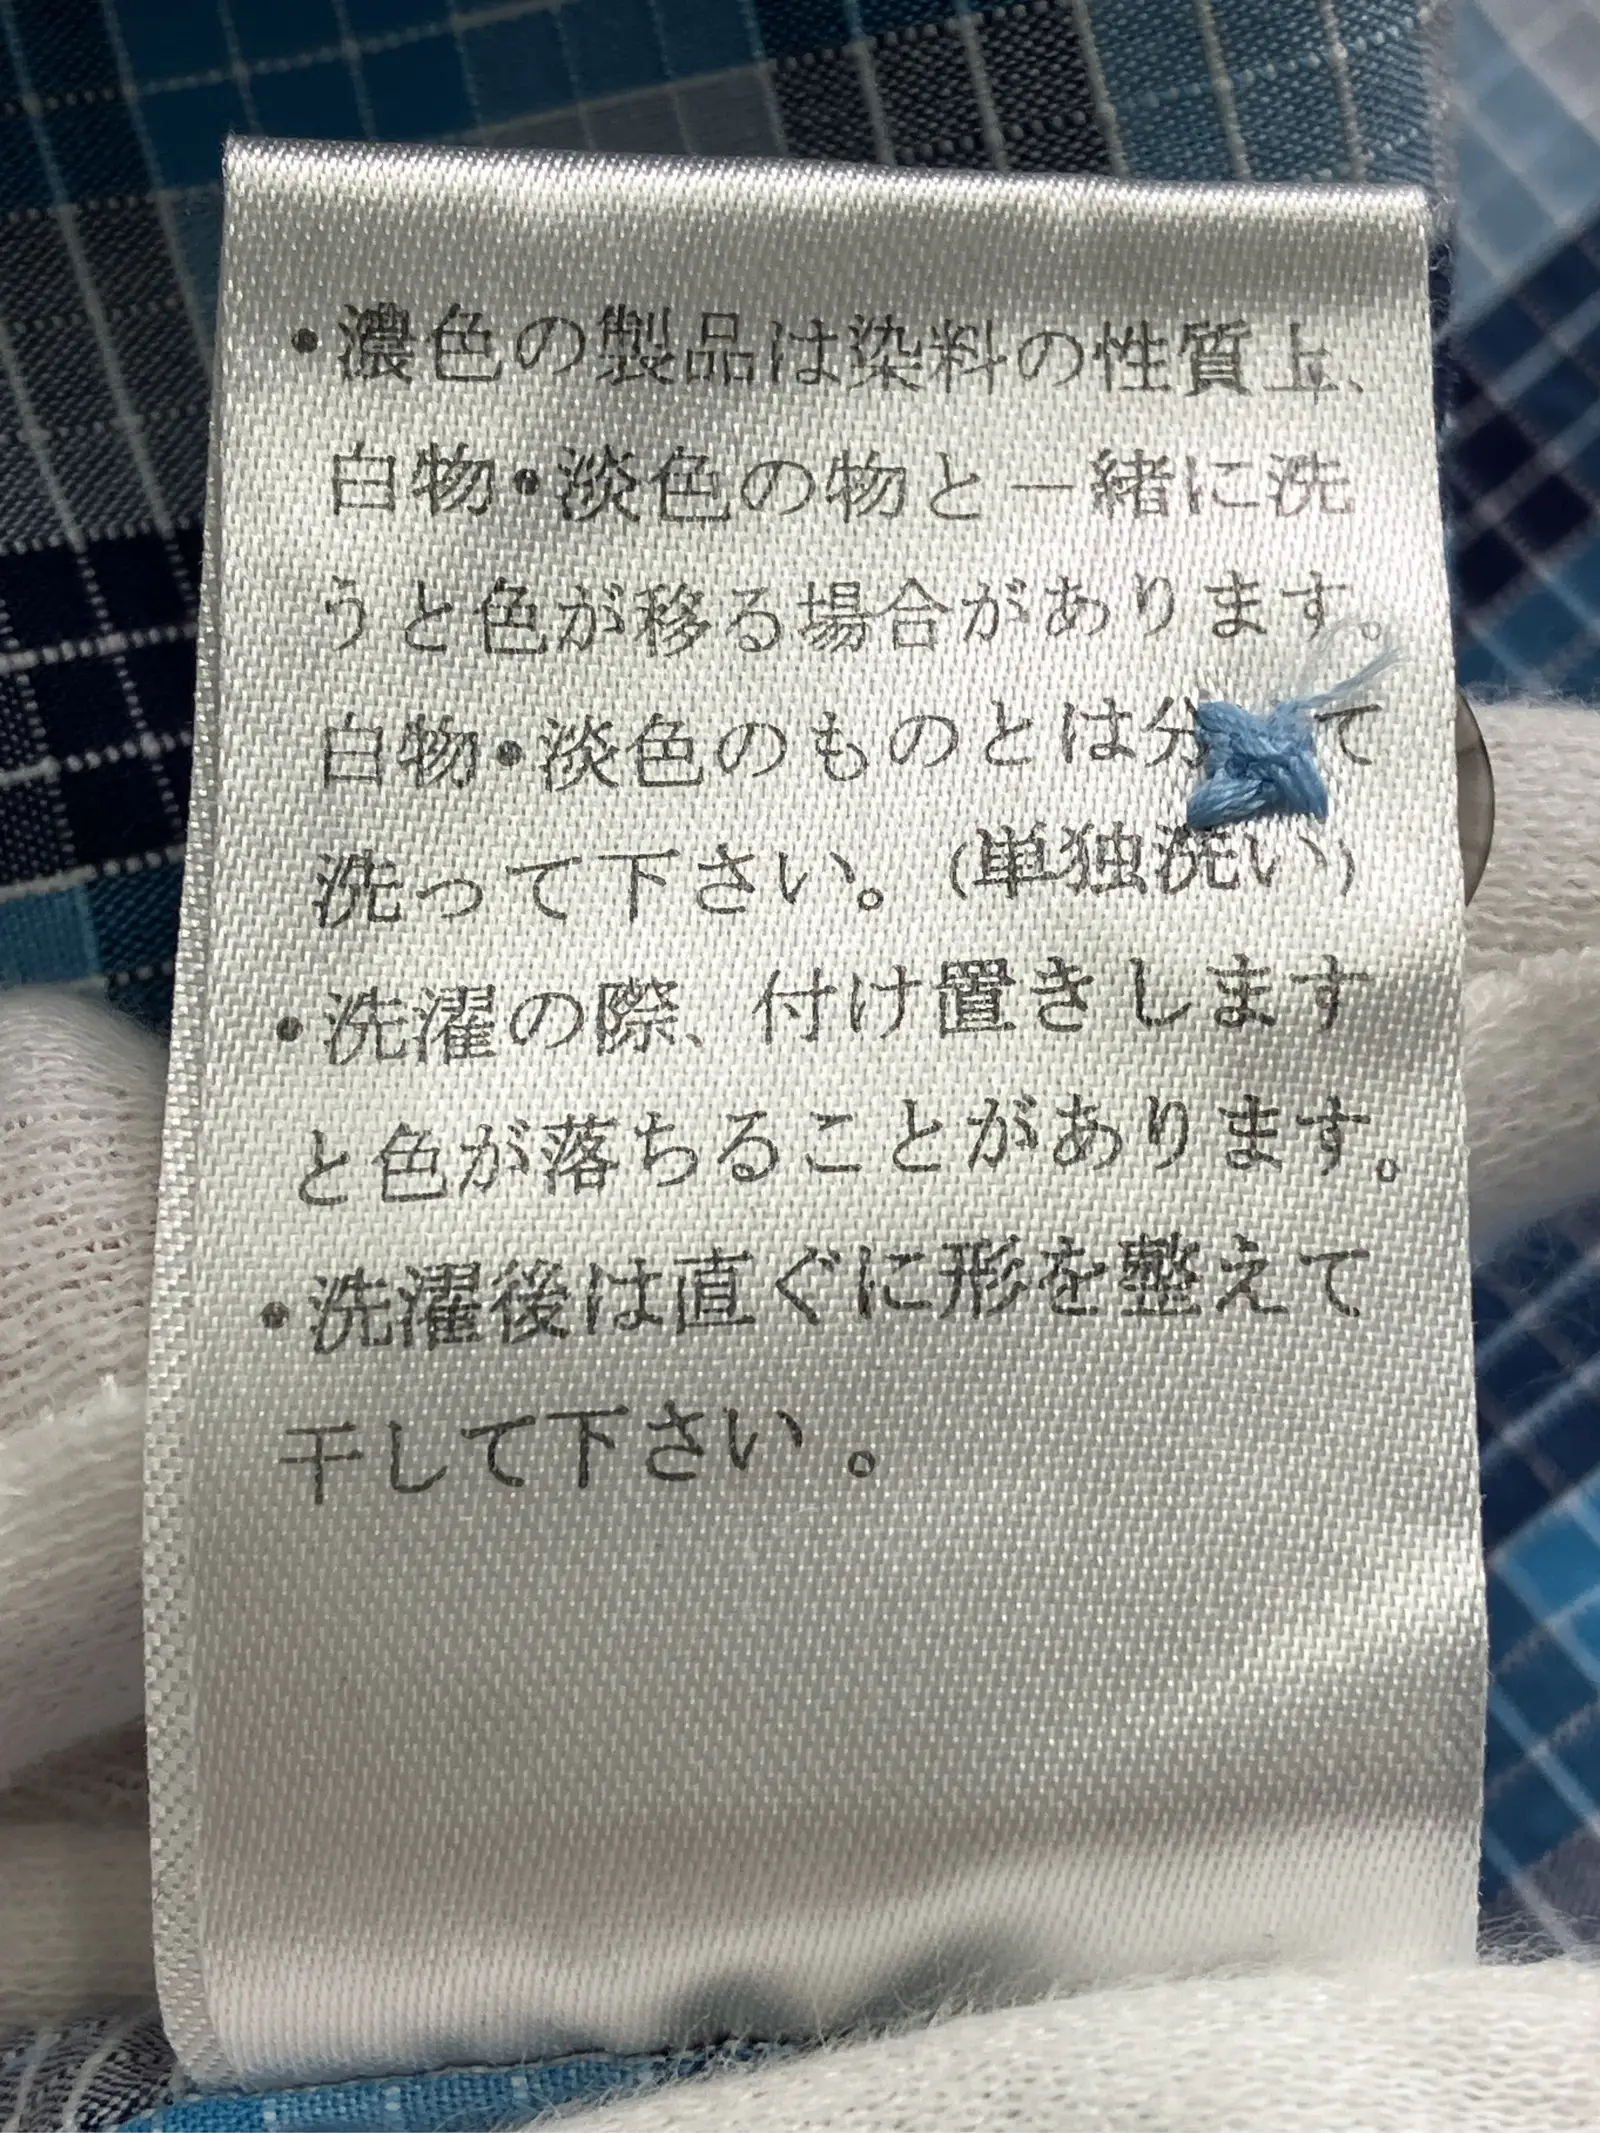 ・濃色の製品は染料の性質上、
白物・淡色の物と一緒に洗
うと色が移る場合があります。
白物・淡色のものとは分 て
洗って下さい。(単独洗い)
・洗濯の際、付け置きします
と色が落ちることがあります。
・洗濯後は直ぐに形を整えて
干して下さい。